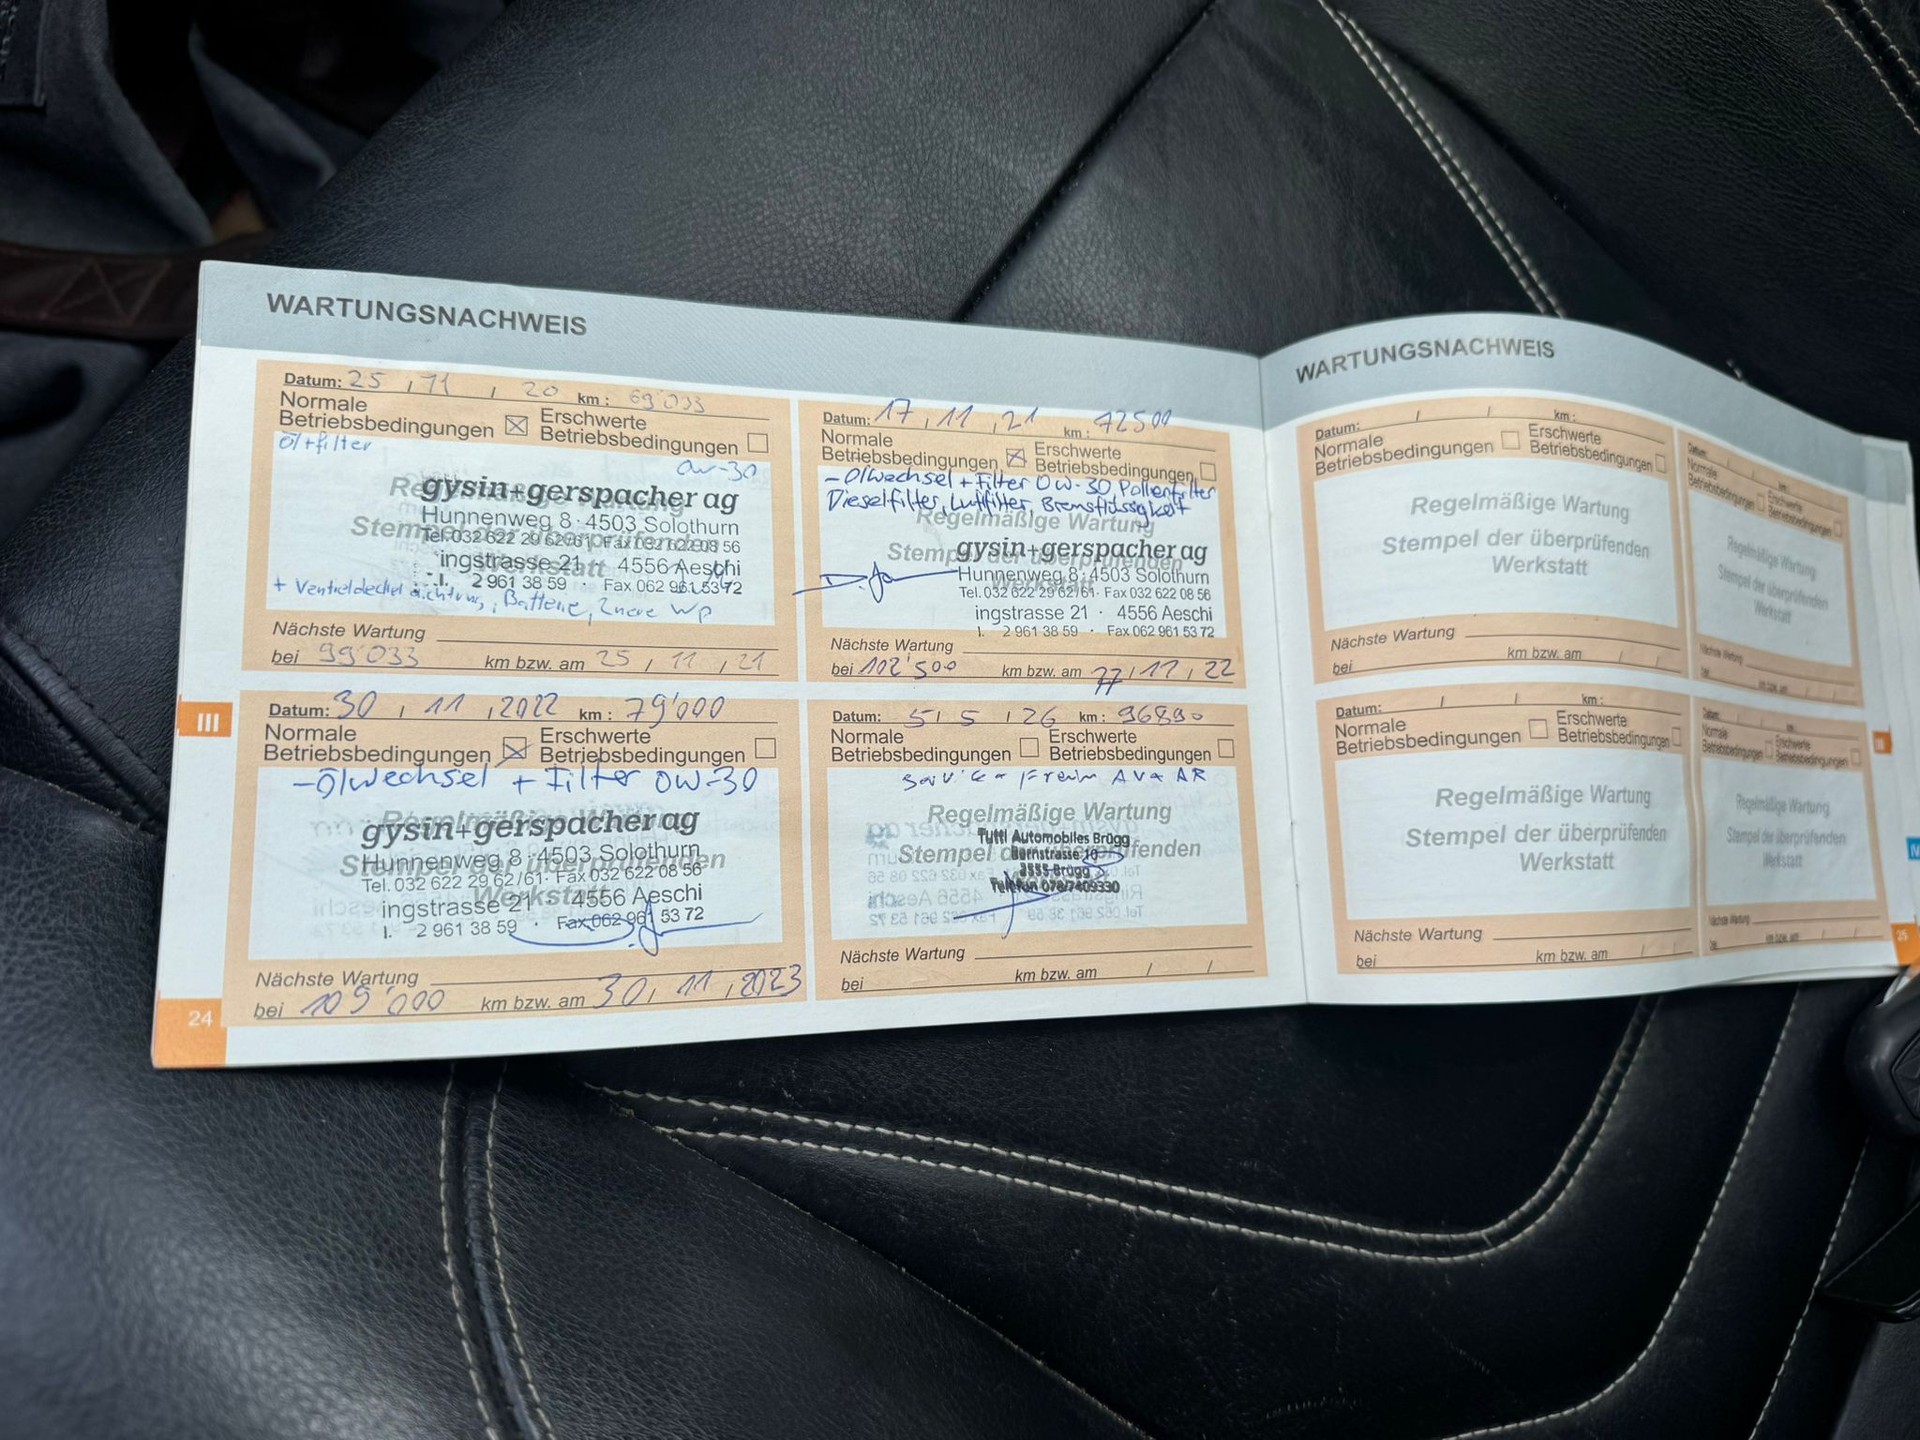 WARTUNGSNACHWEIS
Datum: 25 / 11 / 20 km : 69'033
Normale Betriebsbedingungen
Erschwerte Betriebsbedingungen
Öl+filter
0W-30
Regelmäßige Wartung
Stempel der überprüfenden
Werkstatt
gysin+gerspacher ag
Hunnenweg 8 · 4503 Solothurn
Tel. 032 622 29 62/61 · Fax 032 622 08 56
ingstrasse 21 · 4556 Aeschi
l. 2 961 38 59 · Fax 062 961 53 72
+ Ventildeckel dichtung, Batterie, WP
Nächste Wartung
bei 99'033 km bzw. am 25 / 11 / 21
Datum: 17 / 11 / 21 km : 72500
Normale Betriebsbedingungen
Erschwerte Betriebsbedingungen
- Ölwechsel + Filter 0W-30 Pollenfilter
Dieselfilter, Luftfilter, Bremsflüssigkeit
Regelmäßige Wartung
Stempel der überprüfenden
Werkstatt
gysin+gerspacher ag
Hunnenweg 8 · 4503 Solothurn
Tel. 032 622 29 62/61 · Fax 032 622 08 56
ingstrasse 21 · 4556 Aeschi
l. 2 961 38 59 · Fax 062 961 53 72
Nächste Wartung
bei 102'500 km bzw. am 17 / 12 / 22
III
Datum: 30 / 11 / 2022 km : 79'000
Normale Betriebsbedingungen
Erschwerte Betriebsbedingungen
- Ölwechsel + Filter 0W-30
Regelmäßige Wartung
Stempel der überprüfenden
Werkstatt
gysin+gerspacher ag
Hunnenweg 8 · 4503 Solothurn
Tel. 032 622 29 62/61 · Fax 032 622 08 56
ingstrasse 21 · 4556 Aeschi
l. 2 961 38 59 · Fax 062 961 53 72
Nächste Wartung
bei 109'000 km bzw. am 30 / 11 / 2023
Datum: 5 / 5 / 26 km : 96890
Normale Betriebsbedingungen
Erschwerte Betriebsbedingungen
AV + AR
Regelmäßige Wartung
Stempel der überprüfenden
Tutti Automobiles Brügg
Bernstrasse 10
2555 Brügg
Telefon 078/7409330
Nächste Wartung
bei km bzw. am / /
24
WARTUNGSNACHWEIS
Datum: / / km :
Normale Betriebsbedingungen
Erschwerte Betriebsbedingungen
Regelmäßige Wartung
Stempel der überprüfenden
Werkstatt
Nächste Wartung
bei km bzw. am / /
Datum: / / km :
Normale Betriebsbedingungen
Erschwerte Betriebsbedingungen
Regelmäßige Wartung
Stempel der überprüfenden
Werkstatt
Nächste Wartung
bei km bzw. am / /
Datum: / / km :
Normale Betriebsbedingungen
Erschwerte Betriebsbedingungen
Regelmäßige Wartung
Stempel der überprüfenden
Werkstatt
Nächste Wartung
bei km bzw. am / /
Datum: / / km :
Normale Betriebsbedingungen
Erschwerte Betriebsbedingungen
Regelmäßige Wartung
Stempel der überprüfenden
Werkstatt
Nächste Wartung
bei km bzw. am / /
III
IV
25